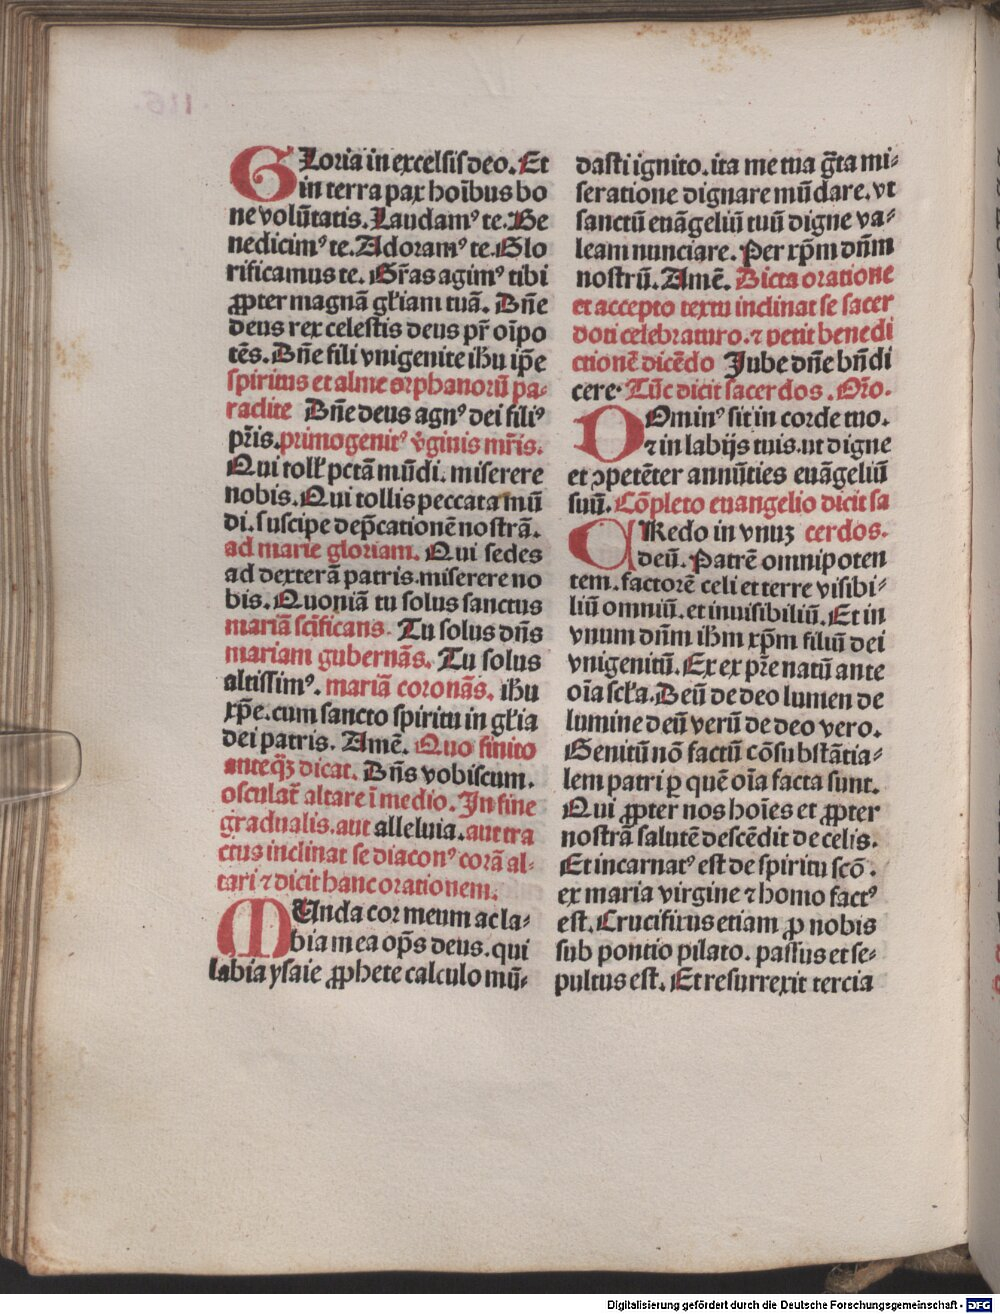 GLoria in excelsis deo. Et
in terra pax hoĩbus bo
ne volũtatis. Laudamꝰ te. Be
nedicimꝰ te. Adoramꝰ te. Glo
rificamus te. Gr̃as agimꝰ tibi
ꝓpter magnã gl̃iam tuã. Dñe
deus rex celestis deus pr̃ oĩpo
tẽs. Dñe fili vnigenite ihũ xp̃e
spiritus et alme orphanorũ pa-
raclite Dñe deus agnꝰ dei filiꝰ
pr̃is. primogenitꝰ v̾ginis mr̃is.
Qui toll̃ pctã mũdi. miserere
nobis. Qui tollis peccata mũ
di. suscipe dep̃cationẽ nostrã.
ad marie gloriam. Qui sedes
ad dexterã patris. miserere no
bis. Quoniã tu solus sanctus
mariã sc̃ificans. Tu solus dñs
mariam gubernãs. Tu solus
altissimꝰ. mariã coronãs. ihũ
xp̃e. cum sancto spiritu in gl̃ia
dei patris. Amẽ. Quo finito
anteqꝫ dicat. Dñs vobiscum.
osculat̃ altare ĩ medio. In fine
gradualis. aut alleluia. aut tra
ctus inclinat se diaconꝰ corã al-
tari ⁊ dicit hanc orationem.
MUnda cor meum ac la-
bia mea op̃s deus. qui
labia ysaie ꝓphete calculo mũ-
dasti ignito. ita me tua g̃ta mi-
seratione dignare mũdare. vt
sanctũ euãgeliũ tuũ digne va-
leam nunciare. Per xp̃m dñm
nostrũ. Amẽ. Dicta oratione
et accepto textu inclinat se sacer
doti celebraturo. ⁊ petit benedi
ctionẽ dicẽdo Jube dñe bñdi
cere. Tũc dicit sacerdos. Or̃o.
DOminꝰ sit in corde tuo.
⁊ in labijs tuis. ut digne
et ꝯpetẽter annũties euãgeliũ
suũ. Cõpleto euangelio dicit sa
CRedo in vnuꝫ cerdos.
deũ. Patrẽ omnipoten
tem. factorẽ celi et terre visibi-
liũ omniũ. et inuisibiliũ. Et in
vnum dñm ihm̃ xp̃m filiũ dei
vnigenitũ. Et ex pr̃e natũ ante
oĩa scl̃a. Deũ de deo lumen de
lumine deũ verũ de deo vero.
Genitũ nõ factũ cõsubstãtia-
lem patri ꝑ quẽ oĩa facta sunt.
Qui ꝓpter nos hoĩes et ꝓpter
nostrã salutẽ descẽdit de celis.
Et incarnatꝰ est de spiritu scõ.
ex maria virgine ⁊ homo factꝰ
est. Crucifixus etiam ꝓ nobis
sub pontio pilato. passus et se-
pultus est. Et resurrexit tercia
Digitalisierung gefördert durch die Deutsche Forschungsgemeinschaft - DFG